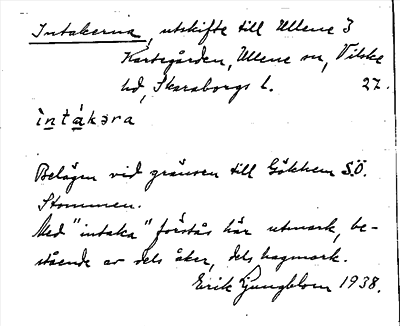 Intakerna, utskifte till Ullene 3
Karstegården, Ullene sn, Vilske
hd, Skaraborgs l. 27.
ìntákəra
Belägen vid gränsen till Gökhem S.Ö.
Stommen.
Med "intaka" förstås här utmark, be-
stående av dels åker, dels hagmark.
Erik Ljungblom 1938.